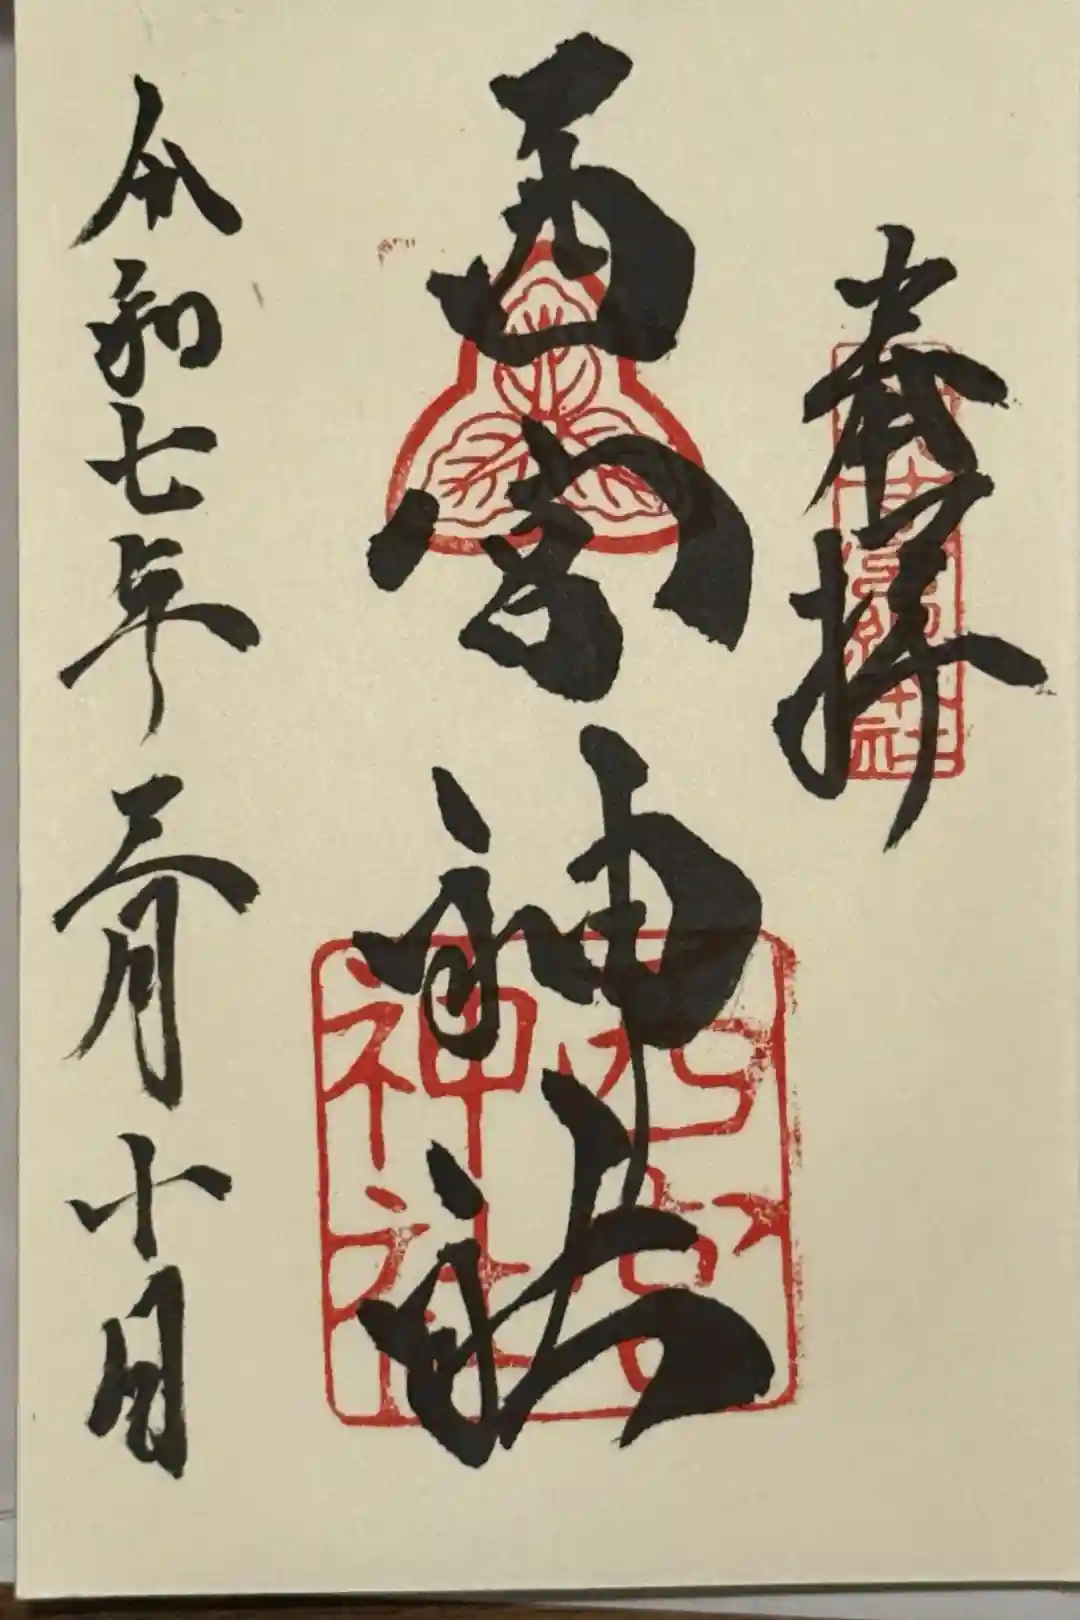 奉拝
西宮神社
西宮神社
令和七年三月十日